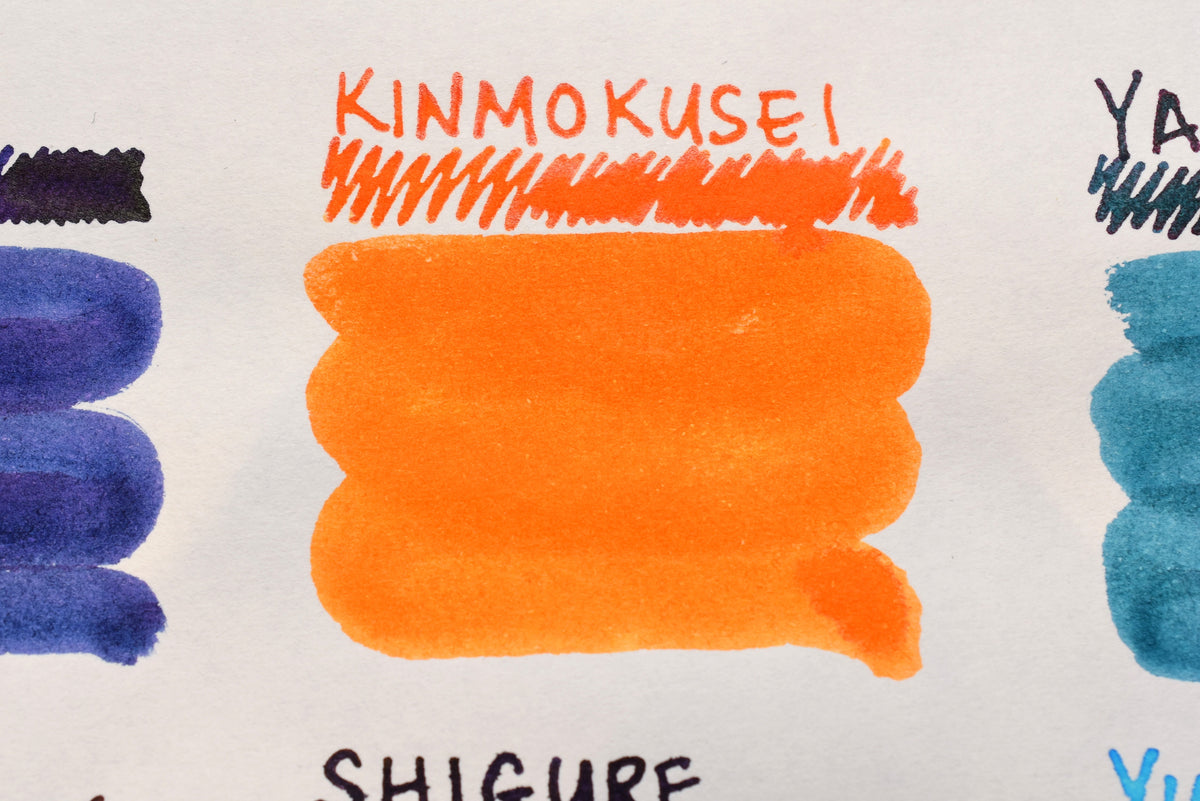 KINMOKUSEI
SHIGURE